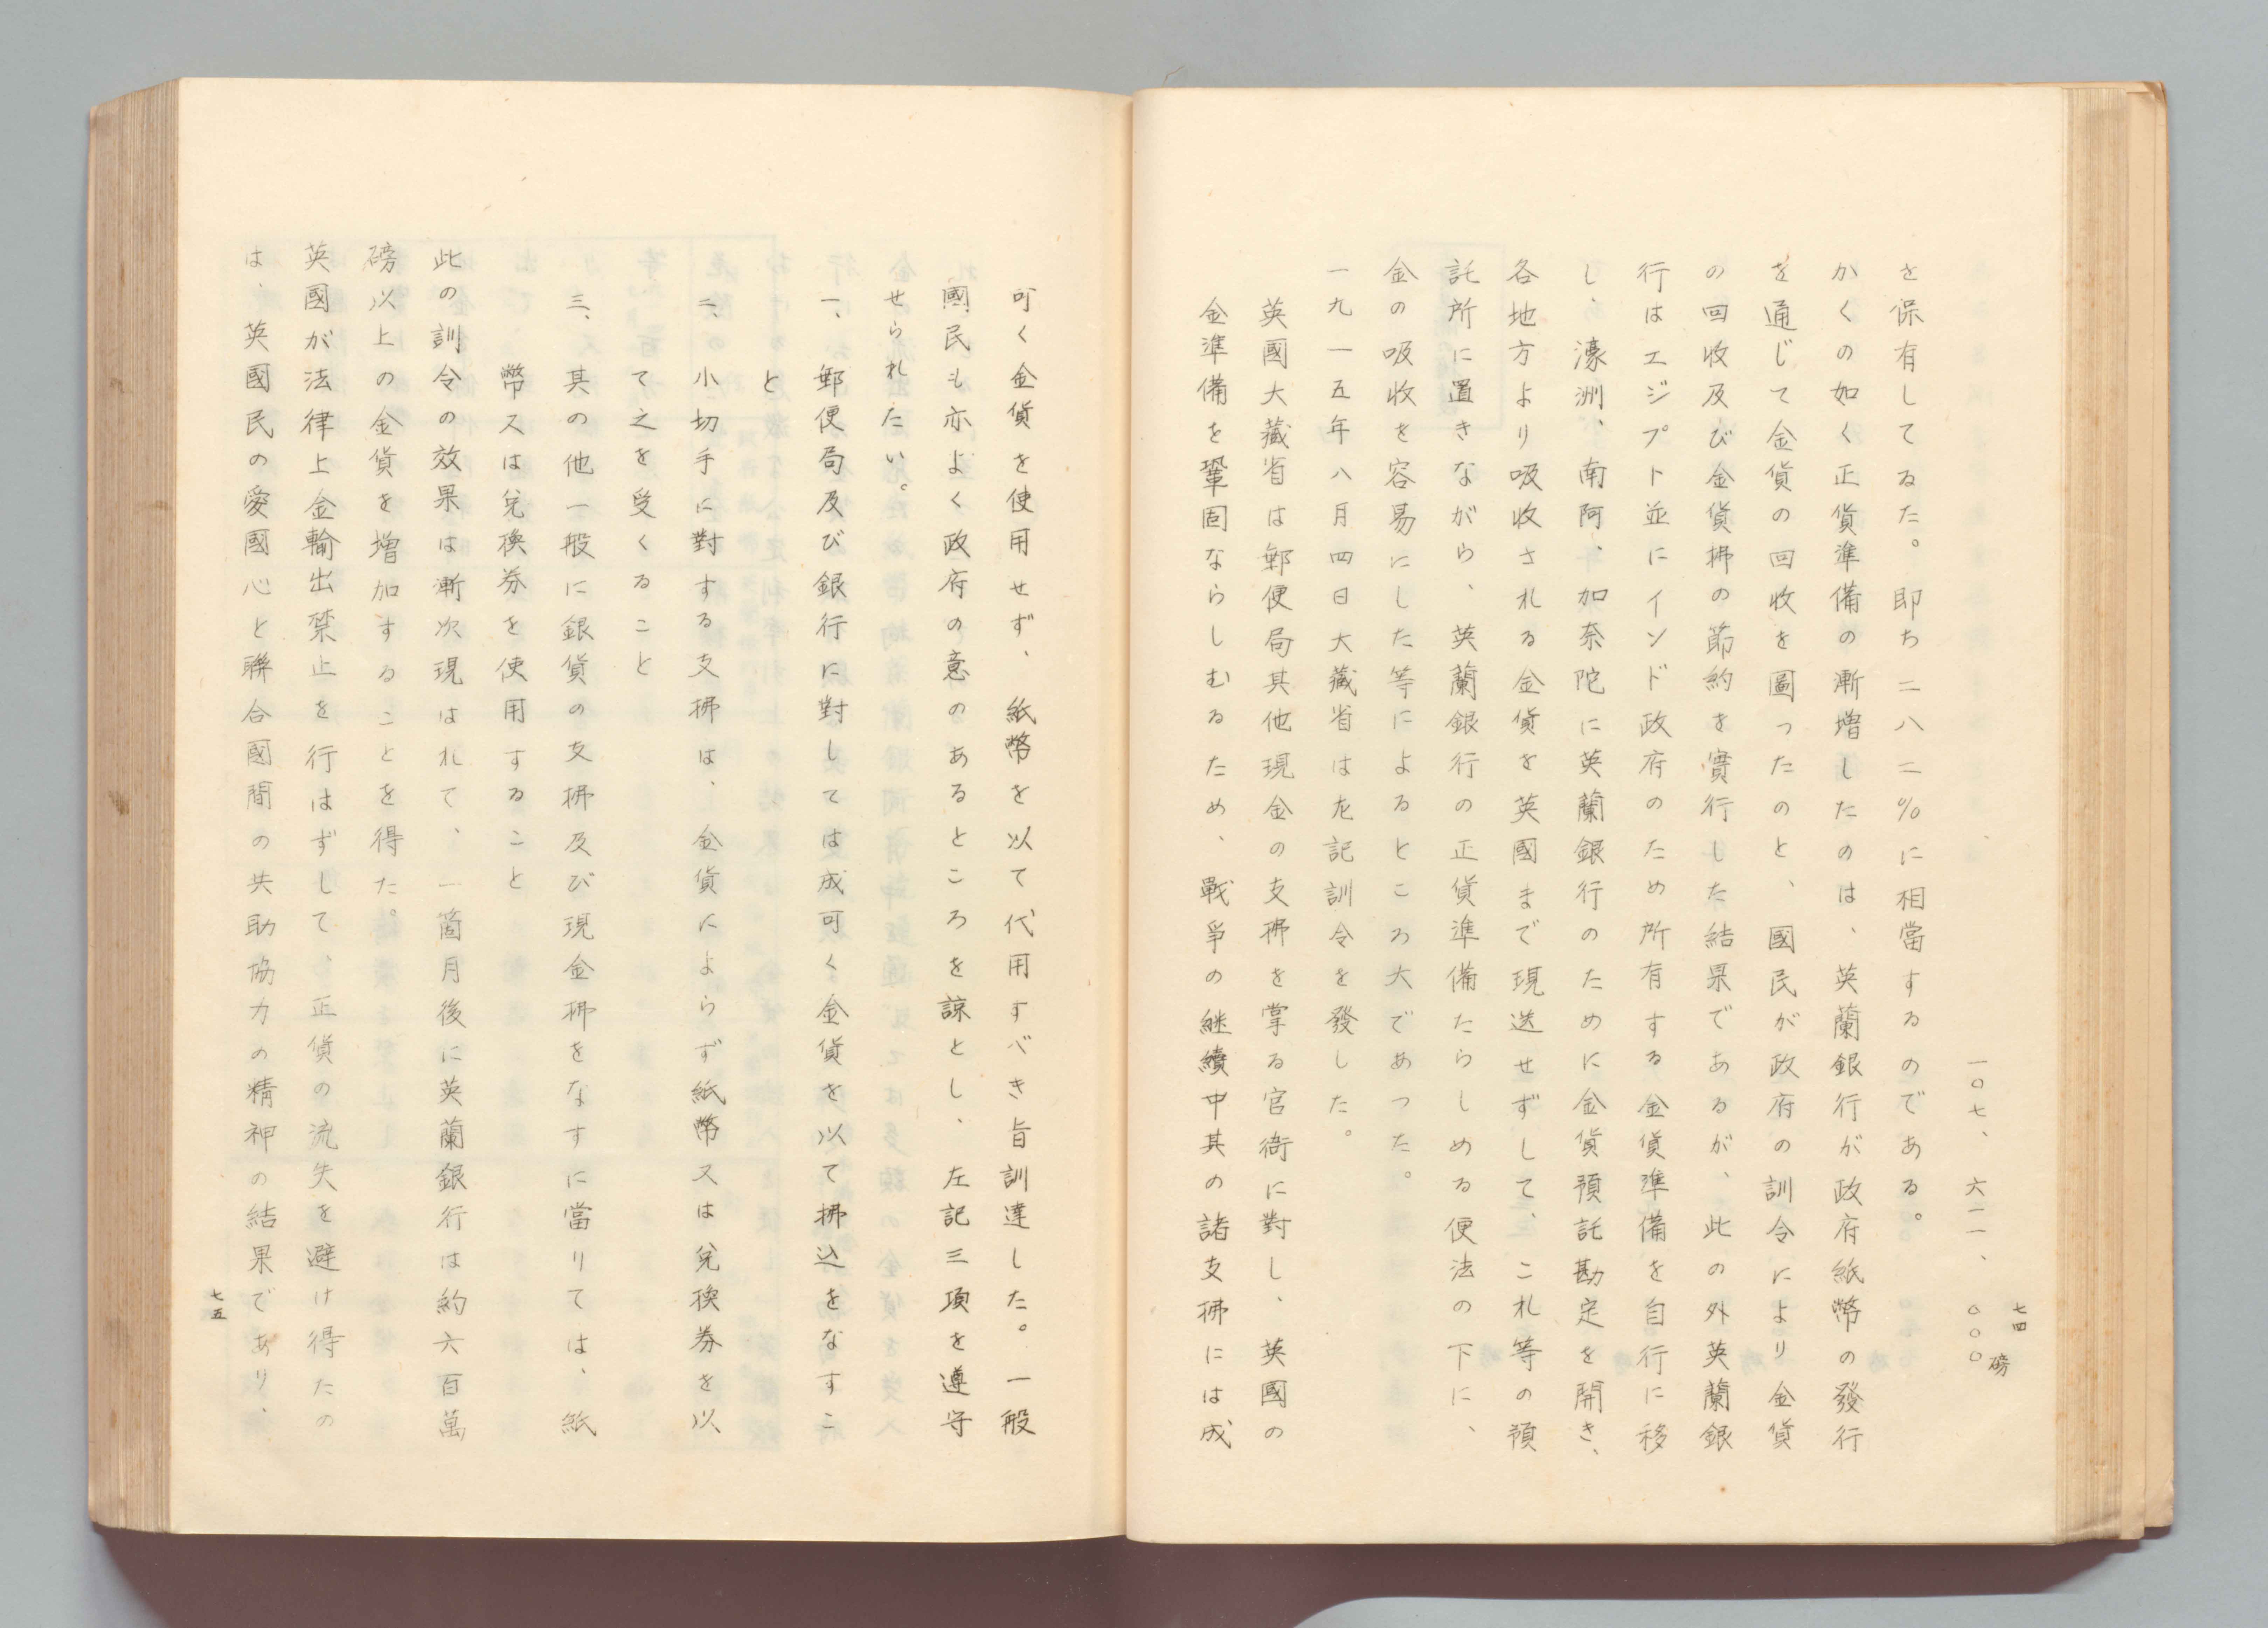 七四
磅
一〇七、六二一、〇〇〇
を保有してゐた。即ち二八二%に相當するのである。
かくの如く正貨準備の漸増したのは、英蘭銀行が政府紙幣の發行
を通じて金貨の回收を圖つたのと、國民が政府の訓令により金貨
の回收及び金貨拂の節約を實行した結果であるが、此の外英蘭銀
行はエジプト並にインド政府のため所有する金貨準備を自行に移
し、濠洲、南阿、加奈陀に英蘭銀行のために金貨預託勘定を開き、
各地方より吸收される金貨を英國まで現送せずして、これ等の預
託所に置きながら、英蘭銀行の正貨準備たらしめる便法の下に、
金の吸收を容易にした等によるところ大であつた。
一九一五年八月四日大藏省は左記訓令を發した。
英國大藏省は郵便局其他現金の支拂を掌る官衙に對し、英國の
金準備を鞏固ならしむるため、戰爭の継續中其の諸支拂には成
可く金貨を使用せず、紙幣を以て代用すべき旨訓達した。一般
國民も亦よく政府の意のあるところを諒とし、左記三項を遵守
せられたい。
一、郵便局及び銀行に對しては成可く金貨を以て拂込をなすこ
と
二、小切手に對する支拂は、金貨によらず紙幣又は兌換券を以
て之を受くること
三、其の他一般に銀貨の支拂及び現金拂をなすに當りては、紙
幣又は兌換券を使用すること
此の訓令の效果は漸次現はれて、一箇月後に英蘭銀行は約六百萬
磅以上の金貨を増加することを得た。
英國が法律上金輸出禁止を行はずして、正貨の流失を避け得たの
は、英國民の愛國心と聯合國間の共助協力の精神の結果であり、
七五